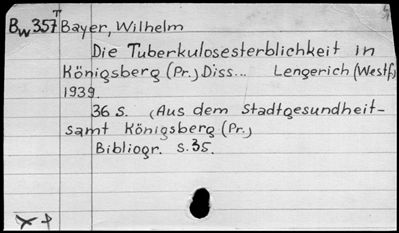 Bw357T Bayer, Wilhelm
Die Tuberkulosesterblichkeit in
Königsberg (Pr.) Diss... Lengerich (Westf.)
1939.
36 S. (Aus dem Stadtgesundheit-
samt Königsberg (Pr.)
Bibliogr. S.35.